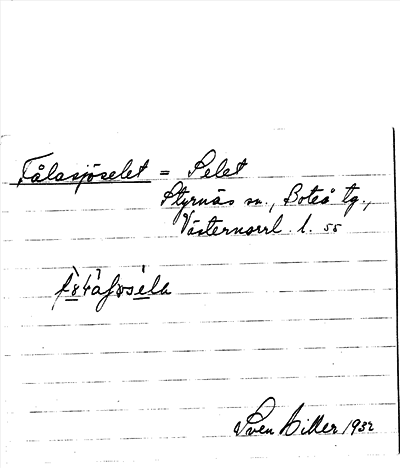 Fålasjöselet = Selet
Styrnäs sn., Boteå tg.,
Västernorrl. l. 55
Sven Hiller 1932